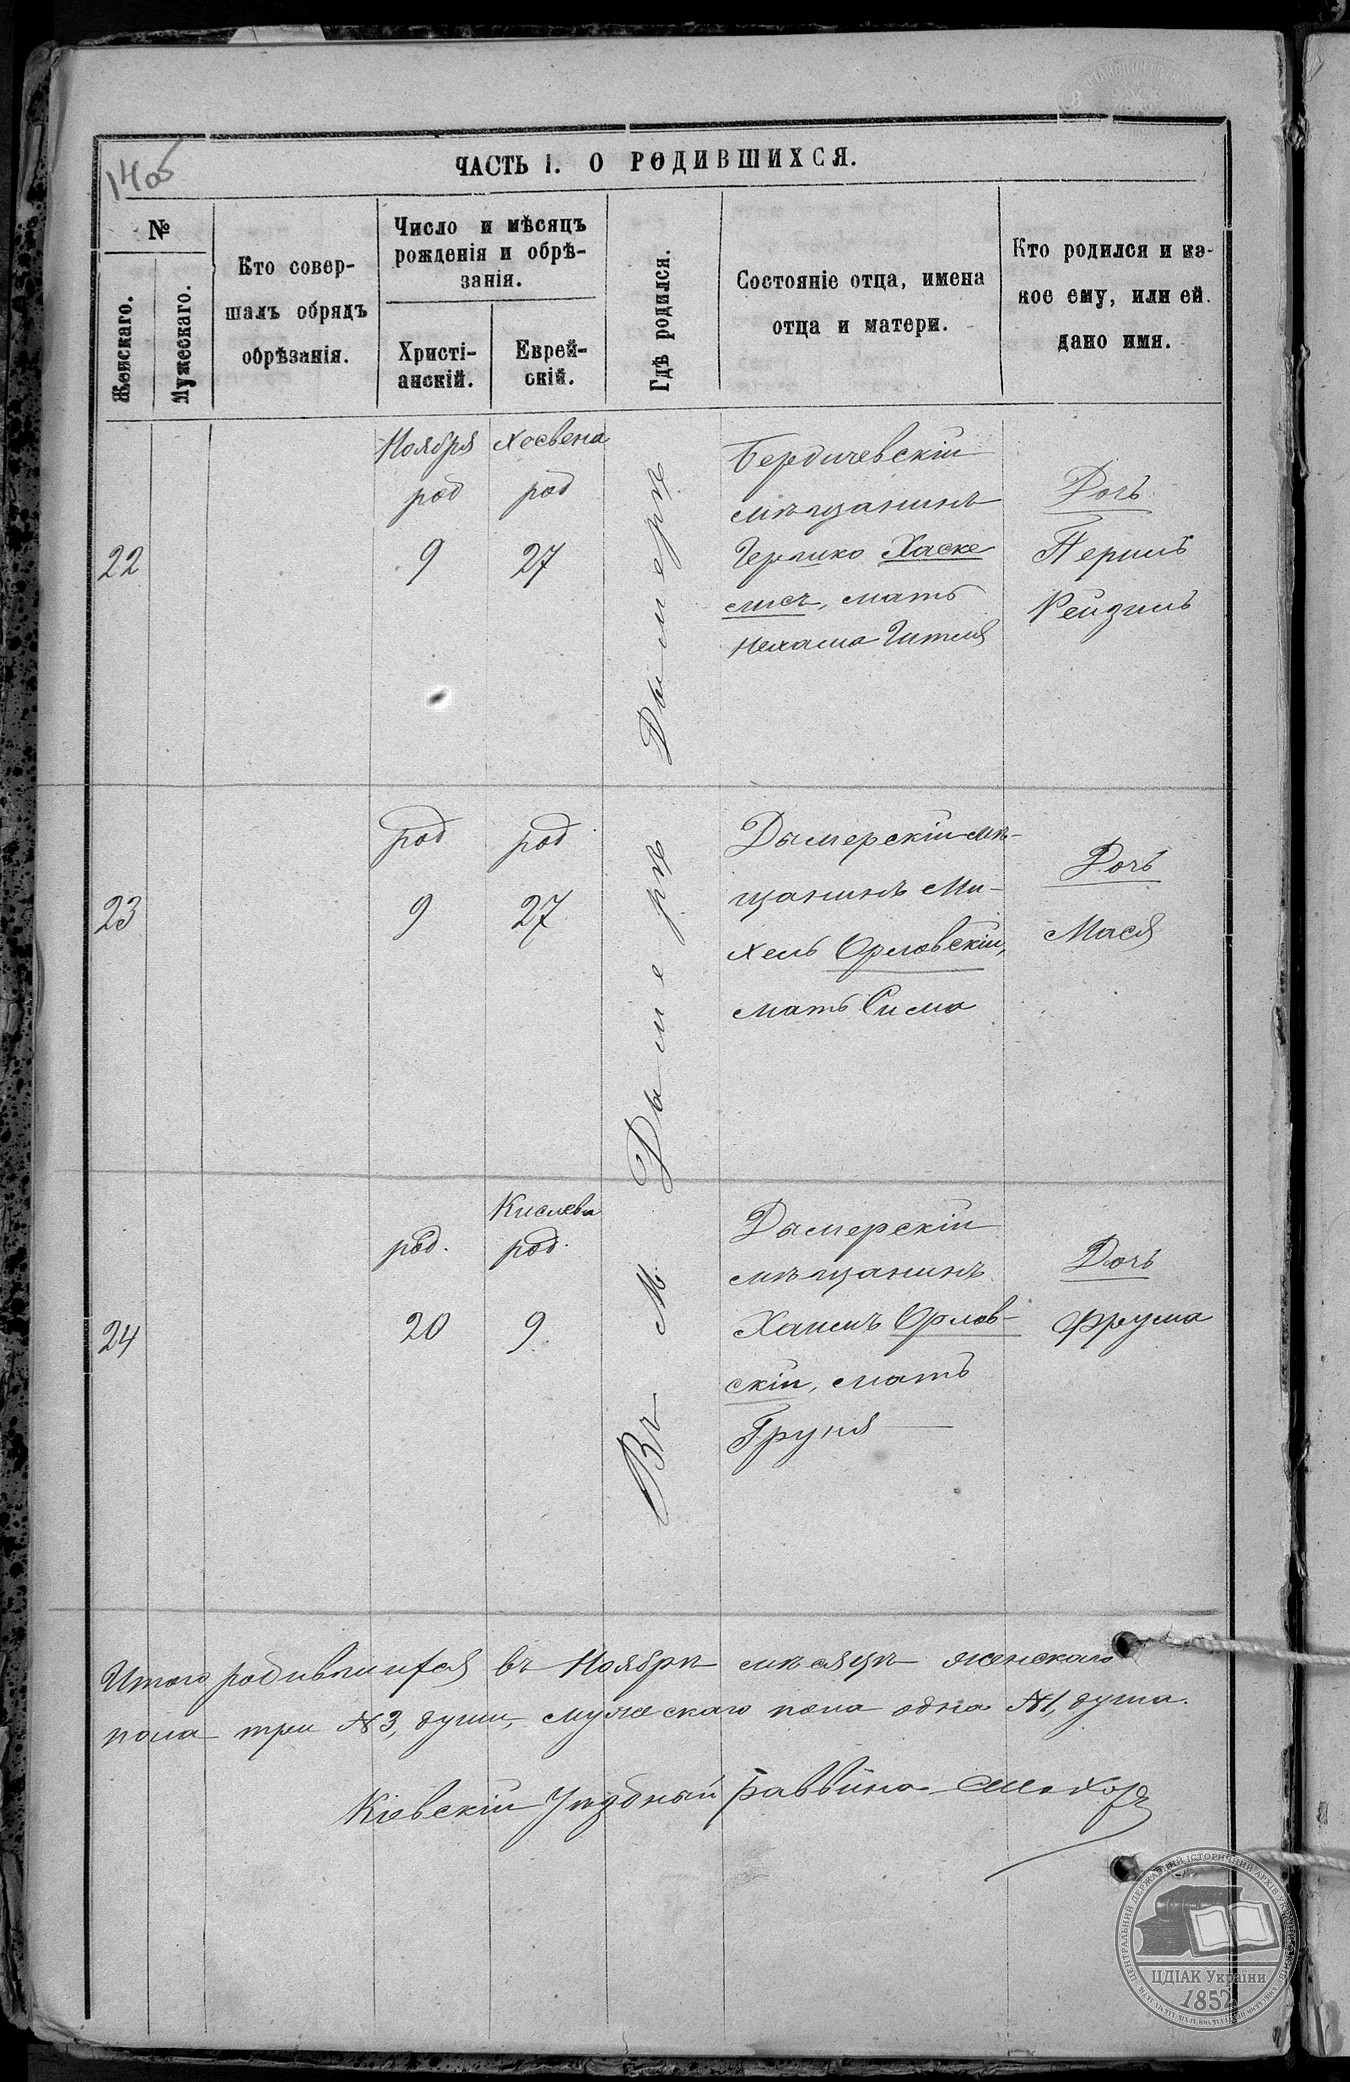 14об
ЧАСТЬ I. О РОДИВШИХСЯ.
№
Женскаго.
Мужескаго.
Кто совер-
шалъ обрядъ
обрѣзанія.
Число и мѣсяцъ
рожденія и обрѣ-
занія.
Христі-
анскій.
Еврей-
скій.
Гдѣ родился.
Состояніе отца, имена
отца и матери.
Кто родился и ка-
кое ему, или ей
дано имя.
22
Ноября
род
9
Хосвена
род
27
Бердичевскій
мѣщанинъ
Хаске
лисъ, мать
Нехама Гитля
Дочь
Перль
Рейзль
23
род
9
род
27
Дымерскій мѣ-
щанинъ Ми-
хель Орловскій,
мать Сима
Дочь
Мася
24
род.
20
Кислева
род.
9
Дымерскій
мѣщанинъ
Хаимъ Орлов-
скій, мать
Груня
Дочь
Фрума
Въ М. Дымерѣ Дымерѣ
Итого родившихся въ Ноябрѣ мѣсяцѣ женскаго
пола три №3, души, мужескаго пола одна №1, душа.
Кіевскій Уѣздный Раввинъ
ЦЕНТРАЛЬНИЙ ДЕРЖАВНИЙ ІСТОРИЧНИЙ АРХІВ УКРАЇНИ
ЦДІАК України
1852